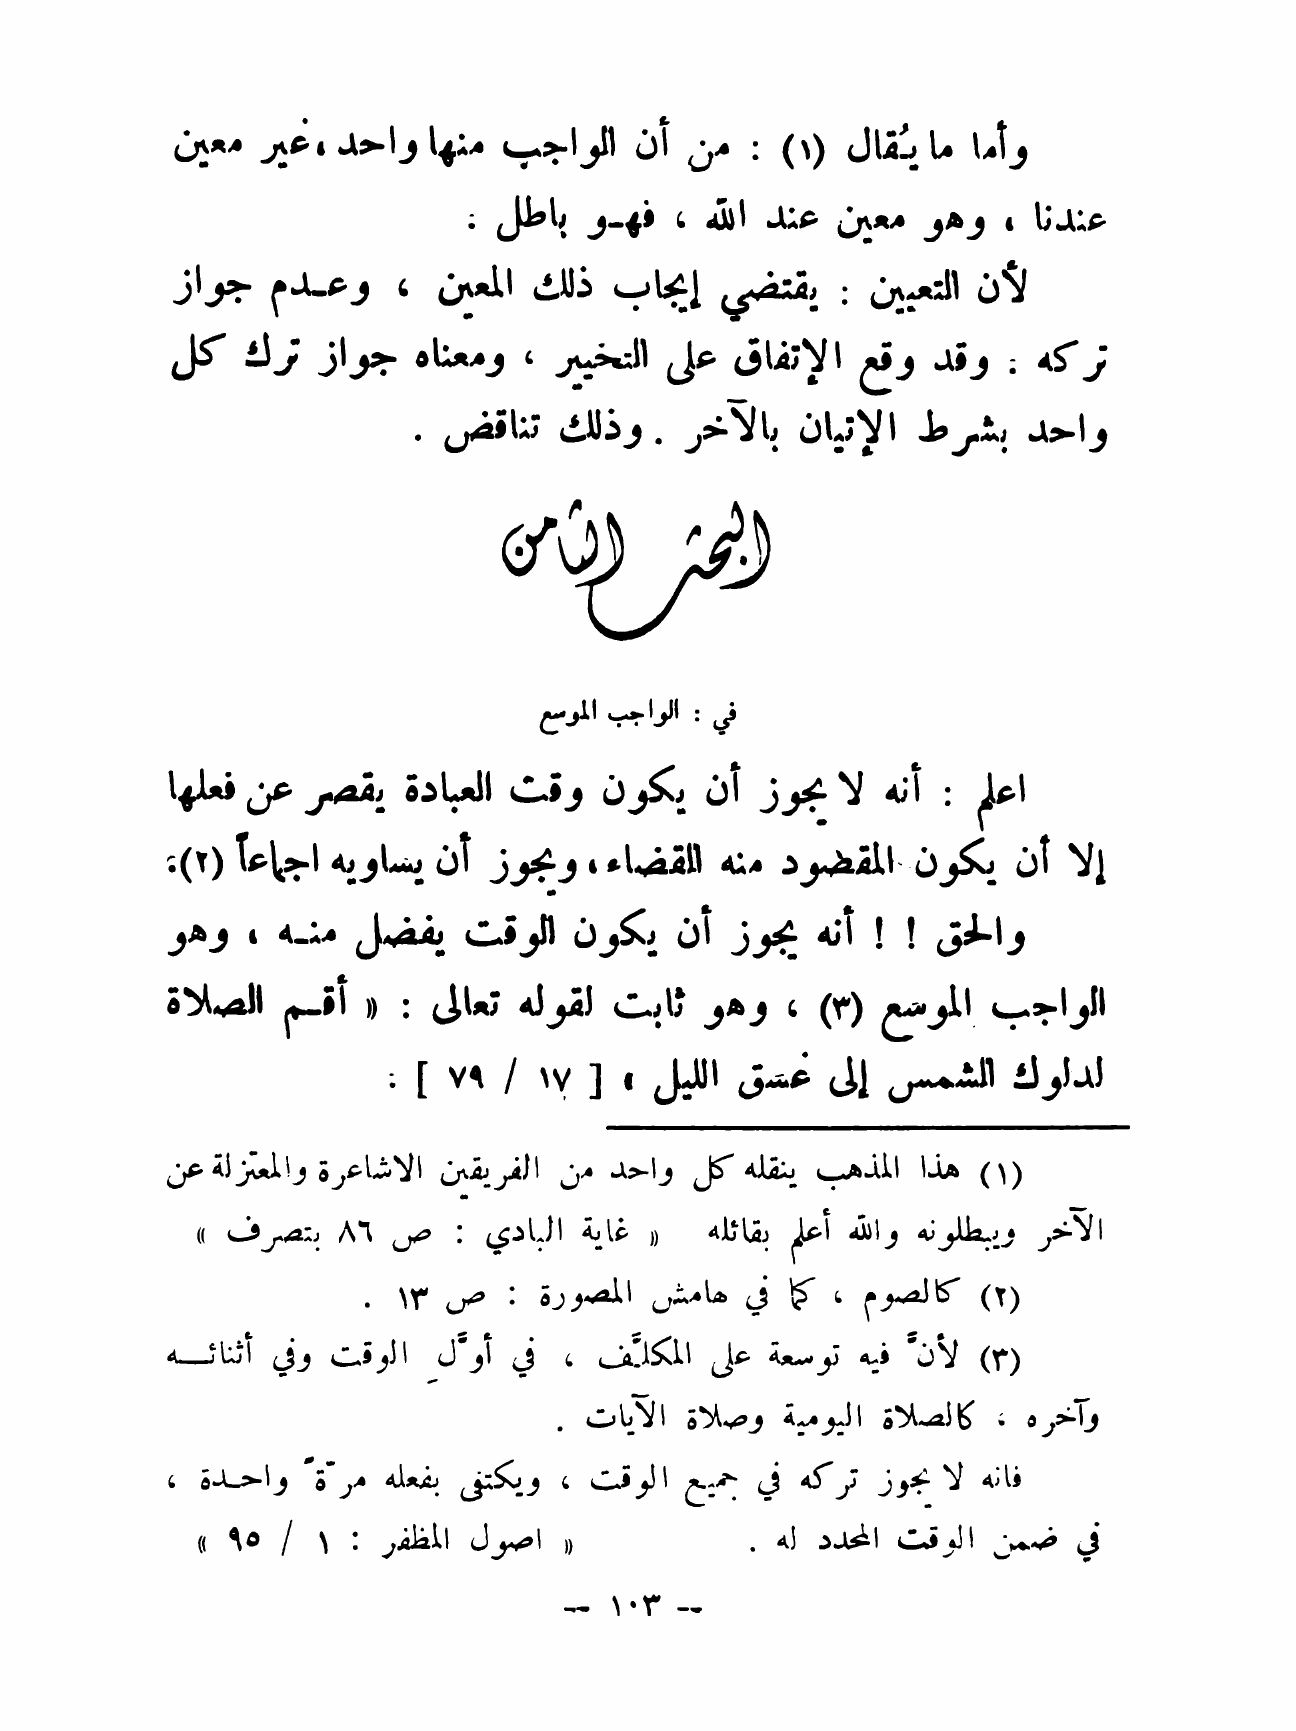 وأما ما يُقال (١) : من أن الواجب منها واحد ، غير معين
عندنا ، وهو معين عند الله ، فهـو باطل :
لأن التعيين : يقتضي إيجاب ذلك المعين ، وعـدم جواز
تركه : وقد وقع الإتفاق على التخيير ، ومعناه جواز ترك كل
واحد بشرط الإتيان بالآخر . وذلك تناقض .
البحث الثامن
في : الواجب الموسع
اعلم : أنه لا يجوز أن يكون وقت العبادة يقصر عن فعلها
إلا أن يكون المقصود منه القضاء ، ويجوز أن يساويه اجماعاً (٢) :
والحق ! ! أنه يجوز أن يكون الوقت يفضل منـه ، وهو
الواجب الموسع (٣) ، وهو ثابت لقوله تعالى : « أقـم الصلاة
لدلوك الشمس إلى غسق الليل » [ ١٧ / ٧٩ ] :
(١) هذا المذهب ينقله كل واحد من الفريقين الاشاعرة والمعتزلة عن
الآخر ويبطلونه والله أعلم بقائله « غاية البادي : ص ٨٦ بتصرف »
(٢) كالصوم ، كما في هامش المصورة : ص ١٣ .
(٣) لأنَّ فيه توسعة على المكلَّف ، في أوَّل الوقت وفي أثنائـــه
وآخره ، كالصلاة اليومية وصلاة الآيات .
فانه لا يجوز تركه في جميع الوقت ، ويكتفى بفعله مرَّةً واحـدة ،
في ضمن الوقت المحدد له . « اصول المظفر : ١ / ٩٥ »
-- ١٠٣ --